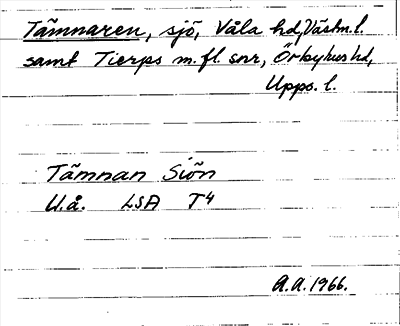 Tämnaren, sjö, Våla hd, Västm. l.
samt Tierps m.fl. snr, Örbyhus hd,
Upps. l.
Tämnan Siön
U.å. LSA T4
A.A. 1966.